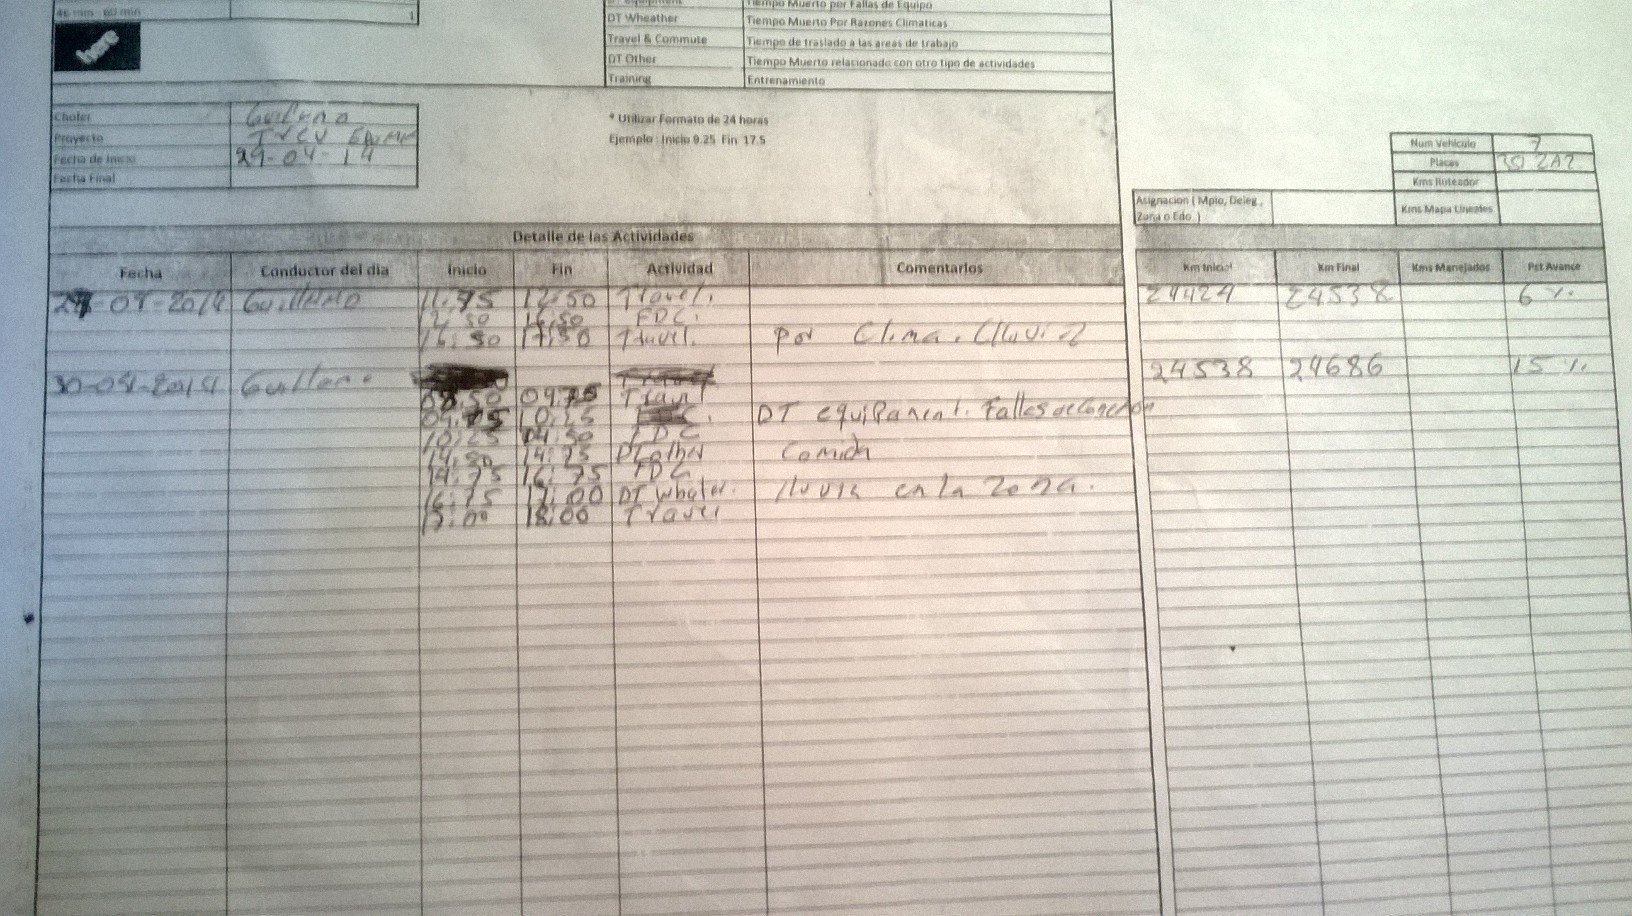 46 min - 60 min 1
Tiempo Muerto por Fallas de Equipo
DT Wheather Tiempo Muerto Por Razones Climaticas
Travel & Commute Tiempo de traslado a las areas de trabajo
DT Other Tiempo Muerto relacionado con otro tipo de actividades
Training Entrenamiento
Chofer
Proyecto
Fecha de Inicio 29-04-14
Fecha Final
* Utilizar Formato de 24 horas
Ejemplo : Inicio 9.25 Fin 17.5
Num Vehiculo 7
Placas
Kms Ruteador
Kms Mapa Lineales
Asignacion ( Mpio, Deleg.,
Zona o Edo. )
Detalle de las Actividades
Fecha Conductor del dia Inicio Fin Actividad Comentarios Km Inicial Km Final Kms Manejados Pct Avance
11:75 12:50 Travel. 24424 24538 6 %.
12:50 16:50 FDC.
16:50 17:50 Travel. Por Clima. Lluvia
24538 24686 15 %.
08:50 09:75
09:75 10:25 DT equipament. Fallas
10:25 04:50 FDC
14:50 14:75 DT other Comida
14:75 16:75 FDC
16:75 17:00 DT lluvia en la Zona.
17:00 18:00 Travel